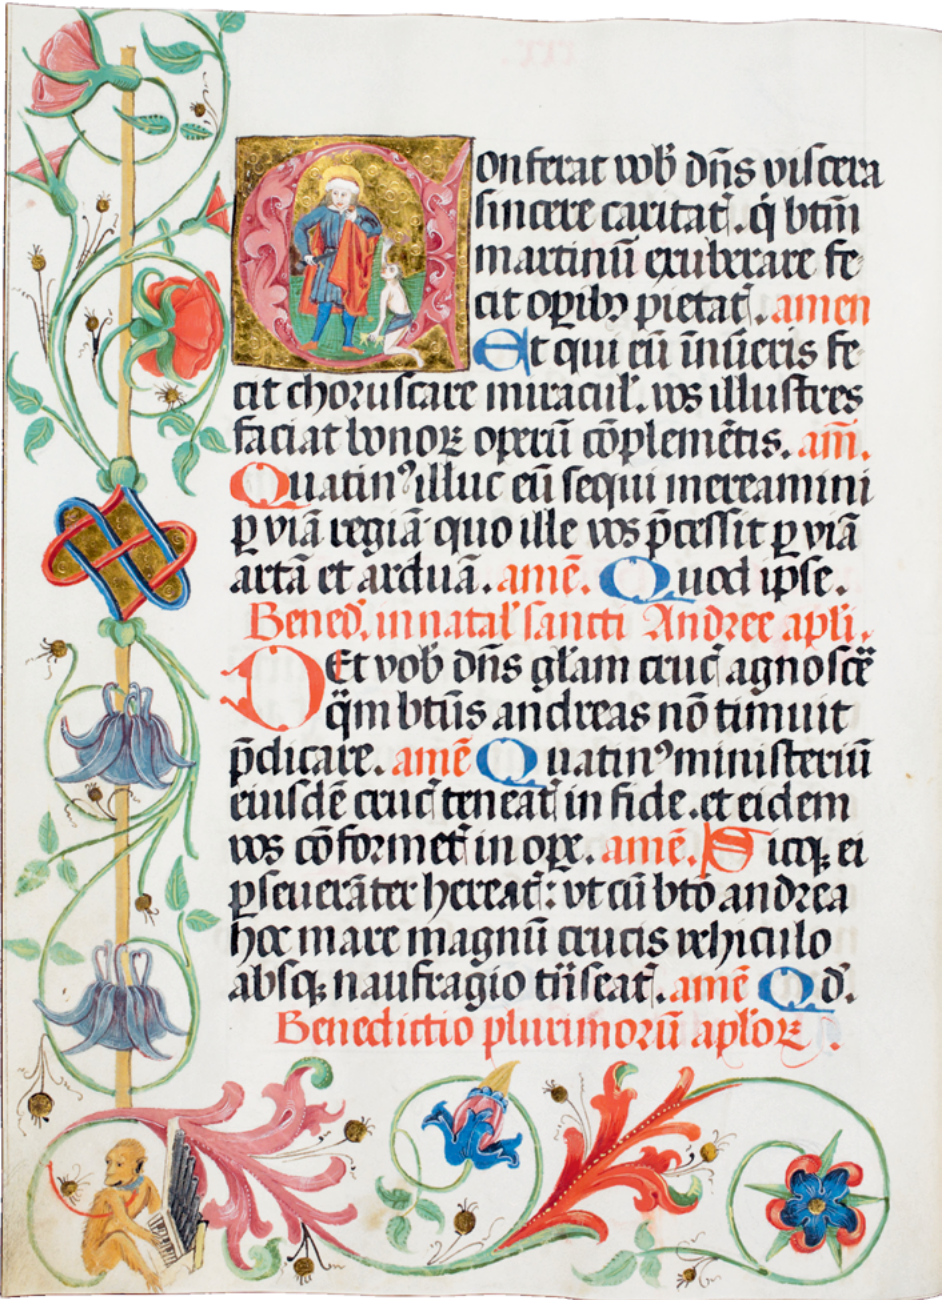 Conferat vob̃ dñs viscera
sincere caritat̃. q̇ btm̃
martinũ exuberare fe
cit op̲ibꝰ pietat̃. amen
Et qui eũ ĩnũeris fe
cit choruscare miracul̃. vos illustres
faciat bonoꝝ operũ cõplemẽtis. am̃.
Quatinꝰ illuc eũ sequi mereamini
ꝑ viã regiã quo ille vos p̃cessit ꝑ viã
artã et arduã. amẽ. Quod ipse.
Bened̃. in natal̃ sancti Andree apl̃i.
DEt vob̃ dñs gl̃am cruc̃ agnoscẽ
q̃m btũs andreas nõ timuit
p̃dicare. amẽ Quatinꝰ ministeriũ
eiusdẽ cruc̃ teneat̃ in fide. et eidem
vos cõformet̃ in oꝑe. amẽ. Sicqꝫ ei
ꝑseuerãter hereat̃: vt cũ btõ andrea
hoc mare magnũ crucis vehiculo
absqꝫ naufragio trãseat̃. amẽ Qd̃.
Benedictio plurimorũ apl̃oꝝ.